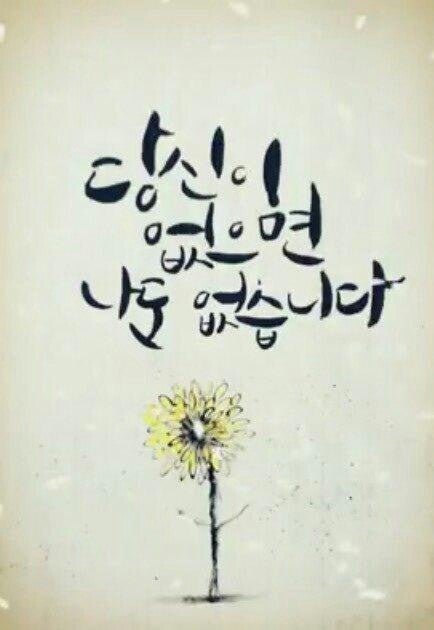 당신이
없으면
나도 없습니다